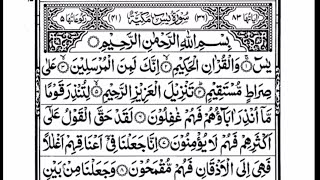 اٰیاتها ٨٣ (٣٦) سُوْرَةُ یٰسٓ مَكِّیَّةٌ (٤١) رکوعاتها ٥
بِسْمِ اللّٰهِ الرَّحْمٰنِ الرَّحِیْمِ
یٰسٓ ۚ وَالْقُرْاٰنِ الْحَكِیْمِ ۙ اِنَّكَ لَمِنَ الْمُرْسَلِیْنَ ۙ عَلٰی
صِرَاطٍ مُّسْتَقِیْمٍ ؕ تَنْزِیْلَ الْعَزِیْزِ الرَّحِیْمِ ۙ لِتُنْذِرَ قَوْمًا
مَّاۤ اُنْذِرَ اٰبَآؤُهُمْ فَهُمْ غٰفِلُوْنَ لَقَدْ حَقَّ الْقَوْلُ عَلٰۤی
اَكْثَرِهِمْ فَهُمْ لَا یُؤْمِنُوْنَ اِنَّا جَعَلْنَا فِیْۤ اَعْنَاقِهِمْ اَغْلٰلًا
فَهِیَ اِلَی الْاَذْقَانِ فَهُمْ مُّقْمَحُوْنَ وَجَعَلْنَا مِنْۢ بَیْنِ